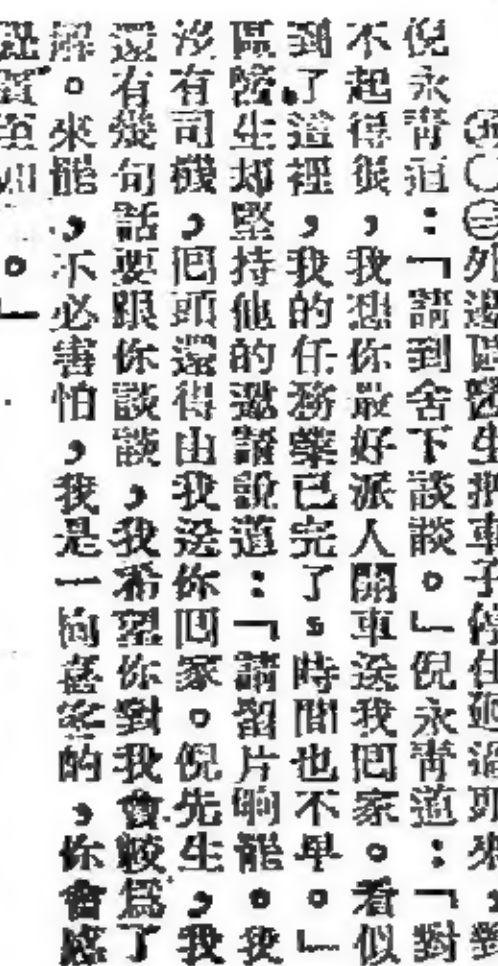 外邊區醫生把車子停住廻過頭來，對
倪永青道：「請到舍下談談。」倪永青道：「對
不起得很，我想你最好派人開車送我囘家。看似
到了這裡，我的任務業已完了，時間也不早。」
區醫生却堅持他的邀請說道：「請留片晌罷。我
沒有司機，囘頭還得由我送你囘家。倪先生，我
還有幾句話要跟你談談，我希望你對我會較爲了
解。來罷，不必害怕，我是一向喜客的，你會感
。」